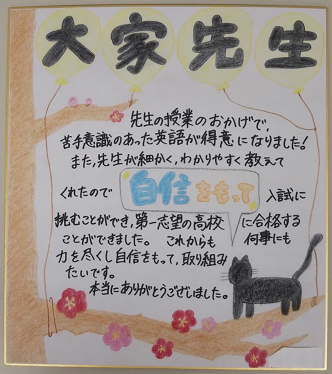 大家先生
先生の授業のおかげで、
苦手意識のあった英語が得意になりました!
また、先生が細かく、わかりやすく教えて
くれたので 自信をもって 入試に
挑むことができ、第一志望の高校に合格する
ことができました。 これからも何事にも
力を尽くし自信をもって、取り組み
たいです。
本当にありがとうございました。